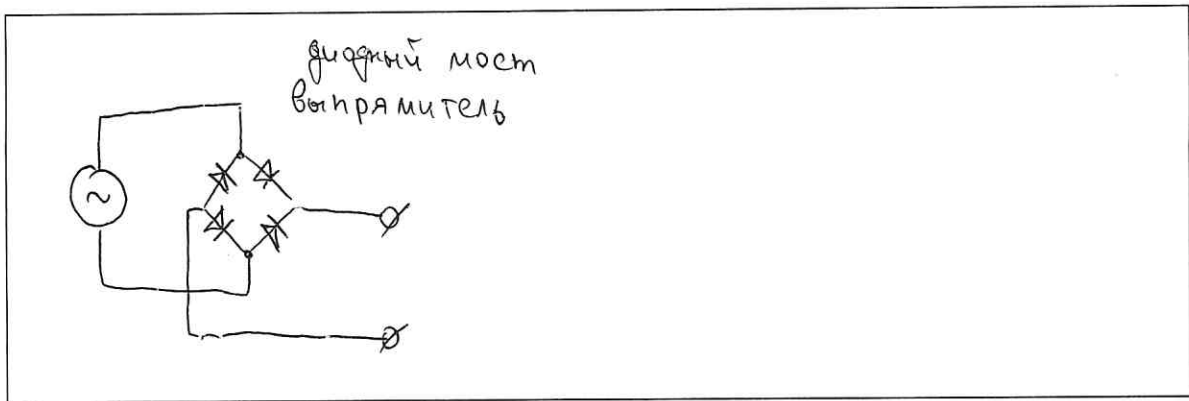 диодный мост
выпрямитель